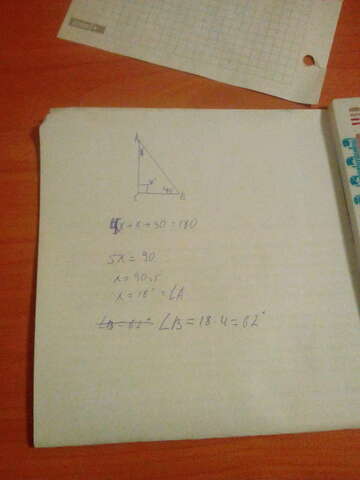 A
x
90°
4x
C
B
4x+x+90=180
5x=90
x=90:5
x=18°=∠A
∠B=62° ∠B=18·4=62°